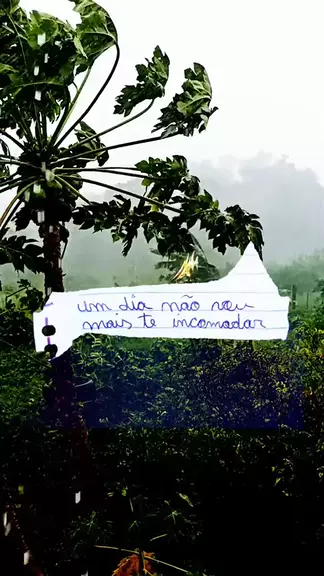 um dia não vou
mais te incomodar